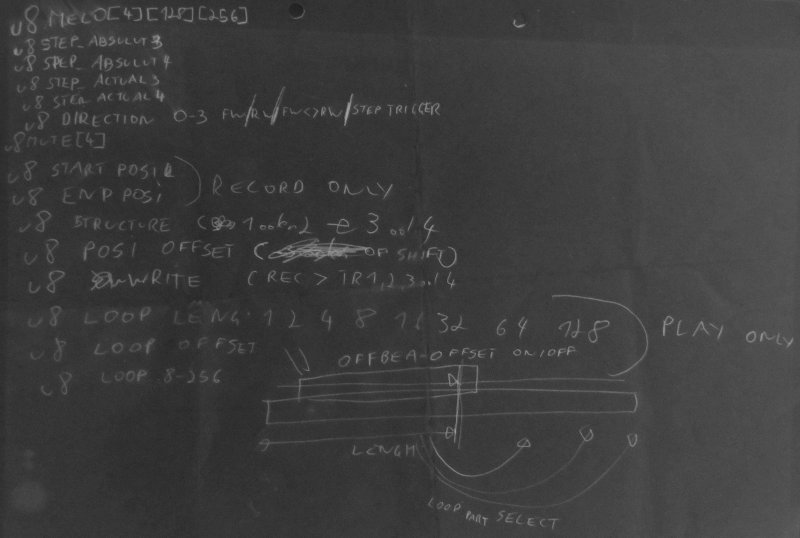 u8 MELO[4][128][256]
u8 STEP_ABSOLUT3
u8 STEP_ABSOLUT4
u8 STEP_ACTUAL3
u8 STEP_ACTUAL4
u8 DIRECTION 0-3 FW/RW/FW<>RW/STEPTRIGGER
u8 MUTE[4]
u8 START POSI
u8 END POSI
RECORD ONLY
u8 STRUCTURE
u8 POSI OFFSET ( OF SHIFT)
u8 WRITE (REC > TR1,2,3../4
u8 LOOP LENG 1 2 4 8 16 32 64 128
PLAY ONLY
u8 LOOP OFFSET
OFFBEA-OFFSET ON/OFF
u8 LOOP 8-256
LENGH
LOOP PART SELECT